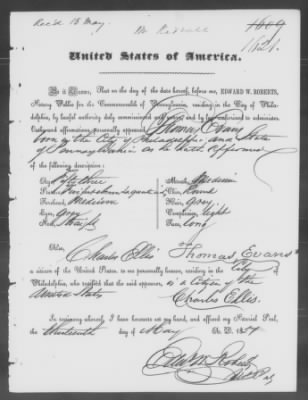 Rec'd 15 May.
1609
1621.
United States of America.
Be it Known, That on the day of the date hereof, before me, EDWARD W. ROBERTS,
Notary Public for the Commonwealth of Pennsylvania, residing in the City of Philadelphia,
by lawful authority duly commissioned and sworn and by law authorized to administer
Oaths and affirmations, personally appeared Thomas Evans
born in the City of Philadelphia and State
of Pennsylvania who on he hath affirmed
of the following description:
Age Fifty three
Mouth Medium
Stature
Chin Round
Forehead Medium
Hair Grey
Eyes Grey
Complexion light
Nose Straight
Face Long
Thomas Evans
Also, Charles Ellis
a citizen of the United States, to me personally known, residing in the City of
Philadelphia, who testifies that the said appearer, is a Citizen of the
United States
Charles Ellis.
In testimony whereof, I have hereunto set my hand, and affixed my Notarial Seal,
the thirteenth day of May A. D. 1854
Edw W. Roberts
Not. Pub.